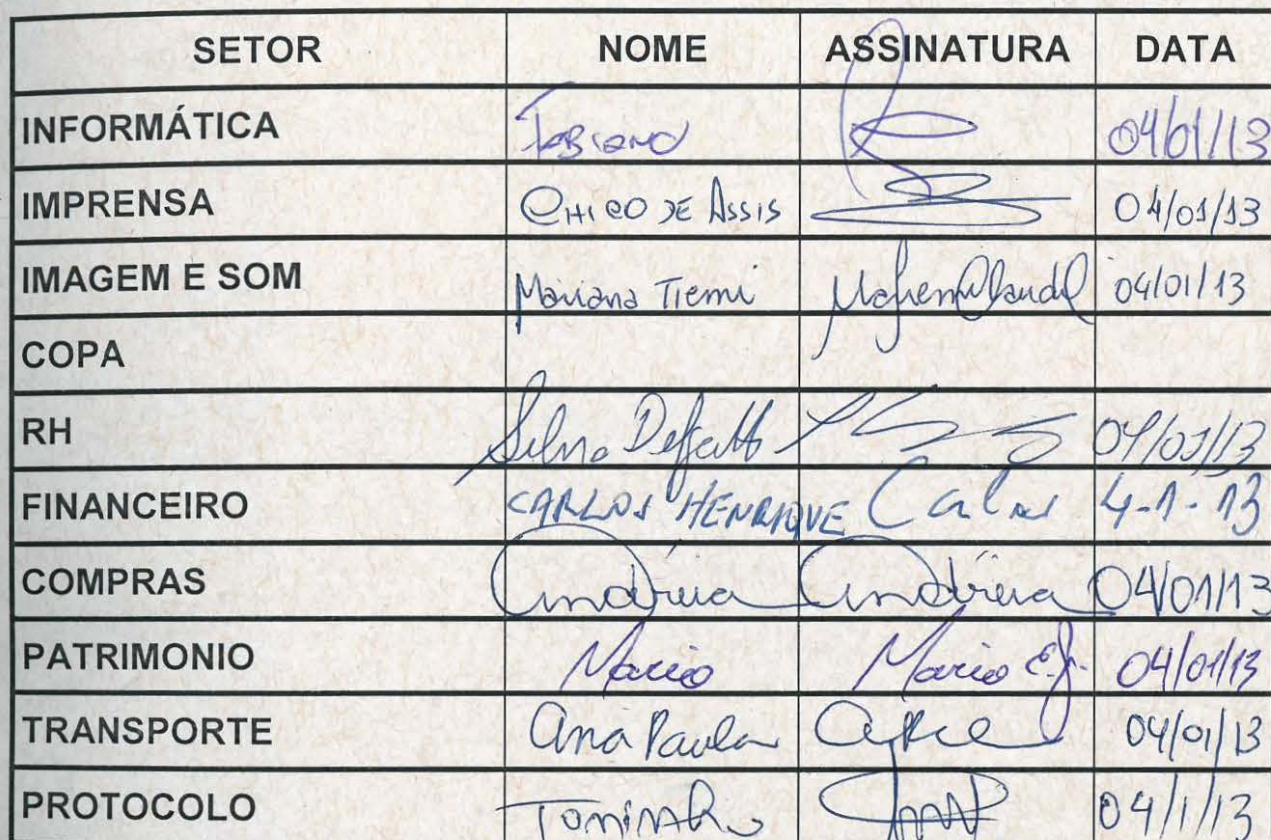 SETOR NOME ASSINATURA DATA
INFORMÁTICA Fabiano 04/01/13
IMPRENSA CHICO DE ASSIS 04/01/13
IMAGEM E SOM Mariana Tiemi 04/01/13
COPA
RH 04/01/13
FINANCEIRO CARLOS HENRIQUE Carlos 4-1-13
COMPRAS Andréia Andréia 04/01/13
PATRIMONIO Mario Mario 04/01/13
TRANSPORTE Ana Paula 04/01/13
PROTOCOLO Toninho 04/1/13